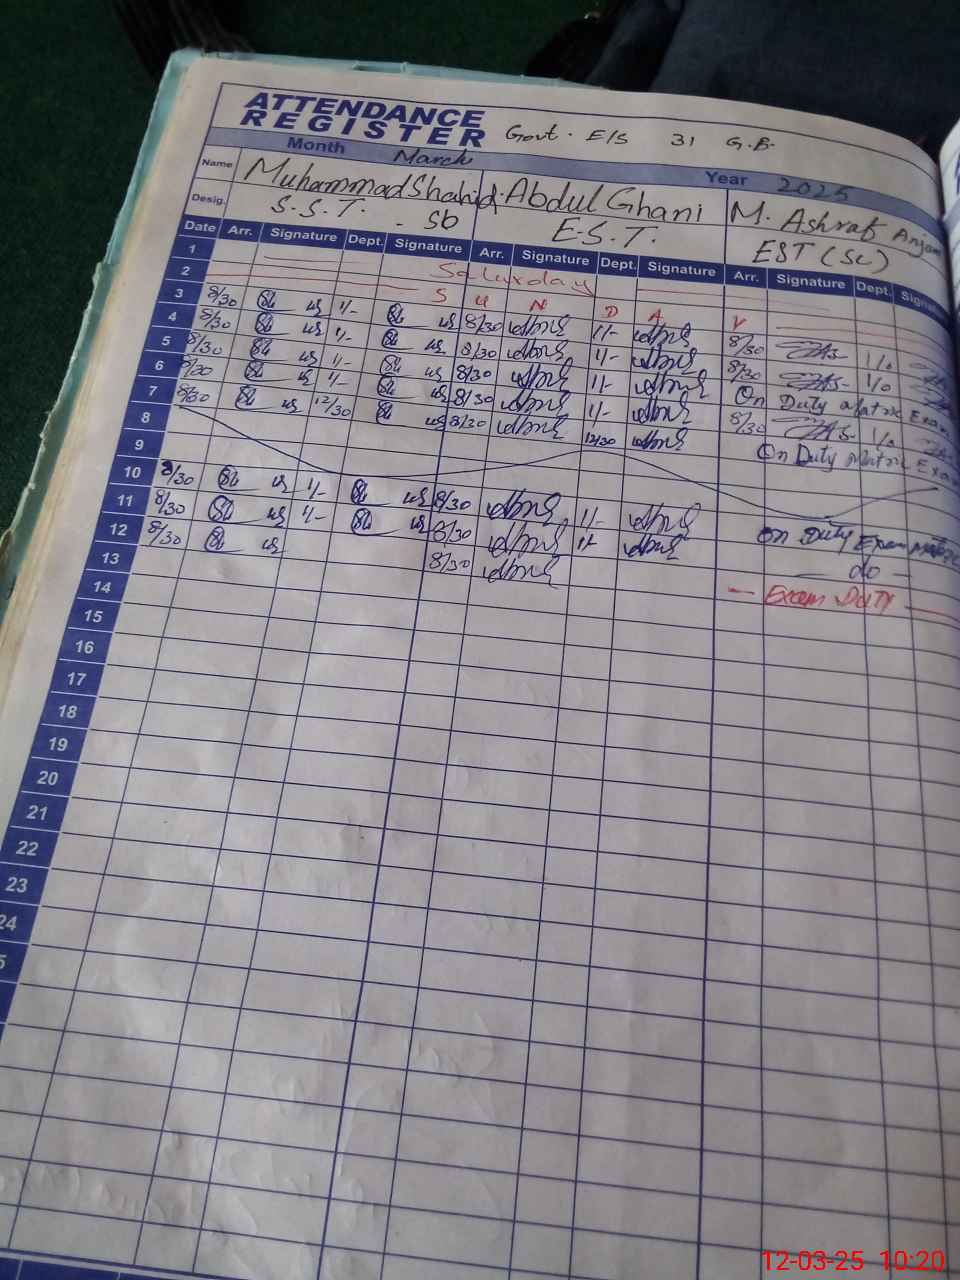 ATTENDANCE
REGISTER Govt. E/S 31 G.B.
Month March Year 2025
Name Muhammad Shahid Abdul Ghani M. Ashraf Anjam
Desig. S.S.T. - Sb E.S.T. EST (Sc)
Date Arr. Signature Dept. Signature Arr. Signature Dept. Signature Arr. Signature Dept. Signature
1 Saturday
2 S U N D A Y
3 8/30 1/- 8/30 1/- 8/30 1/0
4 8/30 1/- 8/30 1/- 8/30 1/0
5 8/30 1/- 8/30 1/- On Duty Matric Exam
6 8/30 1/- 8/30 1/- 8/30 1/0
7 8/30 12/30 8/30 12/30 On Duty Matric Exam
8
9
10 8/30 1/- 8/30 1/- On Duty Exam Matric
11 8/30 1/- 8/30 1/- do -
12 8/30 8/30 - Exam Duty -
13
14
15
16
17
18
19
20
21
22
23
24
5
12-03-25 10:20